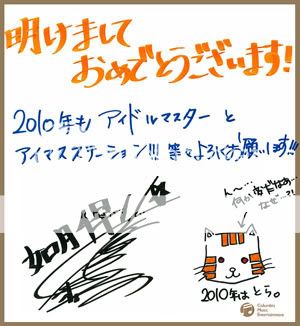 明けまして
おめでとうございます!
2010年も アイドルマスター と
アイマスステーション!!! 等々よろしくお願いします!!!
ん〜…
何か変だなあ…
なぜ…?!
如月
2010年は とら。
Columbia
Music
Entertainment